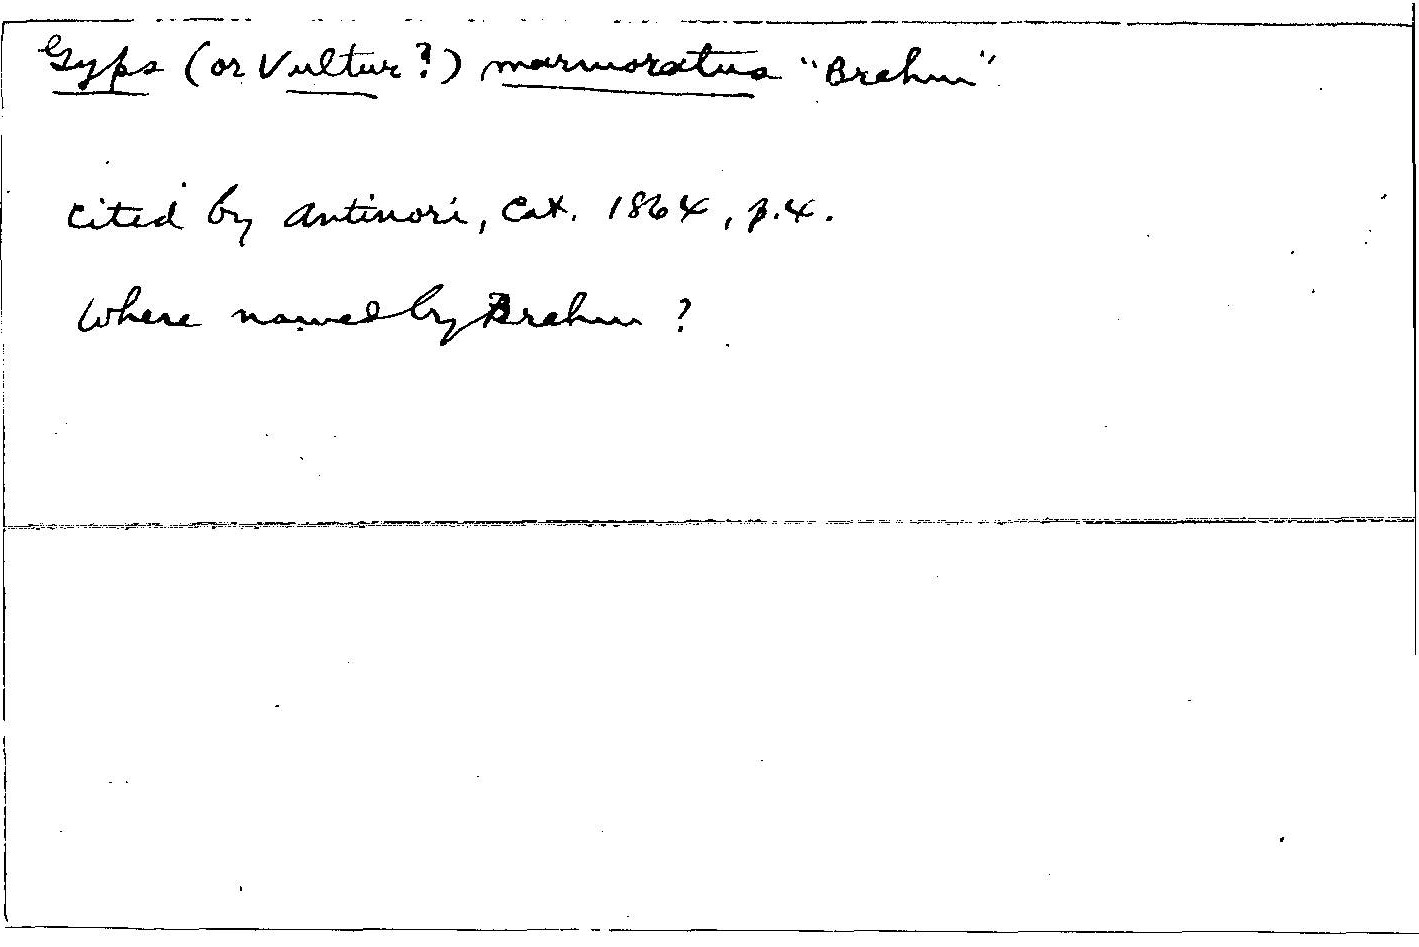 Gyps (or Vultur?) marmoratus "Brehm"
cited by Antinori, Cat. 1864, p.4.
Where named by Brehm ?